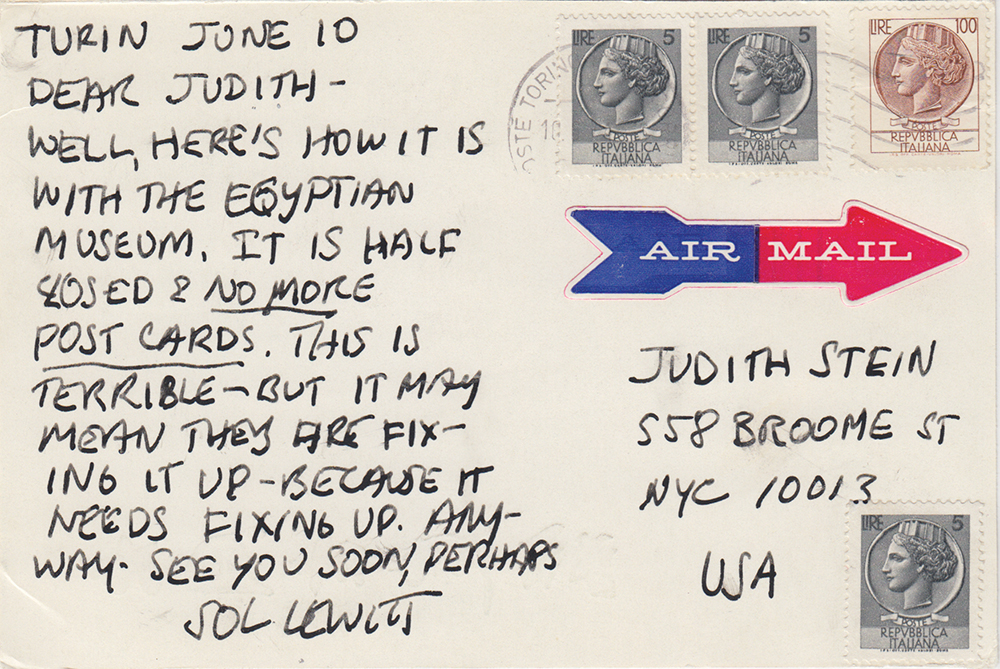 TURIN JUNE 10
DEAR JUDITH-
WELL, HERE'S HOW IT IS
WITH THE EGYPTIAN
MUSEUM. IT IS HALF
CLOSED & NO MORE
POST CARDS. THIS IS
TERRIBLE-BUT IT MAY
MEAN THEY ARE FIX-
ING IT UP-BECAUSE IT
NEEDS FIXING UP. ANY-
WAY- SEE YOU SOON, PERHAPS
SOL LEWITT
LIRE 5
POSTE
REPVBBLICA
ITALIANA
LIRE 5
POSTE
REPVBBLICA
ITALIANA
LIRE 100
POSTE
REPVBBLICA
ITALIANA
POSTE TORINO
AIR MAIL
JUDITH STEIN
558 BROOME ST
NYC 10013
USA
LIRE 5
POSTE
REPVBBLICA
ITALIANA